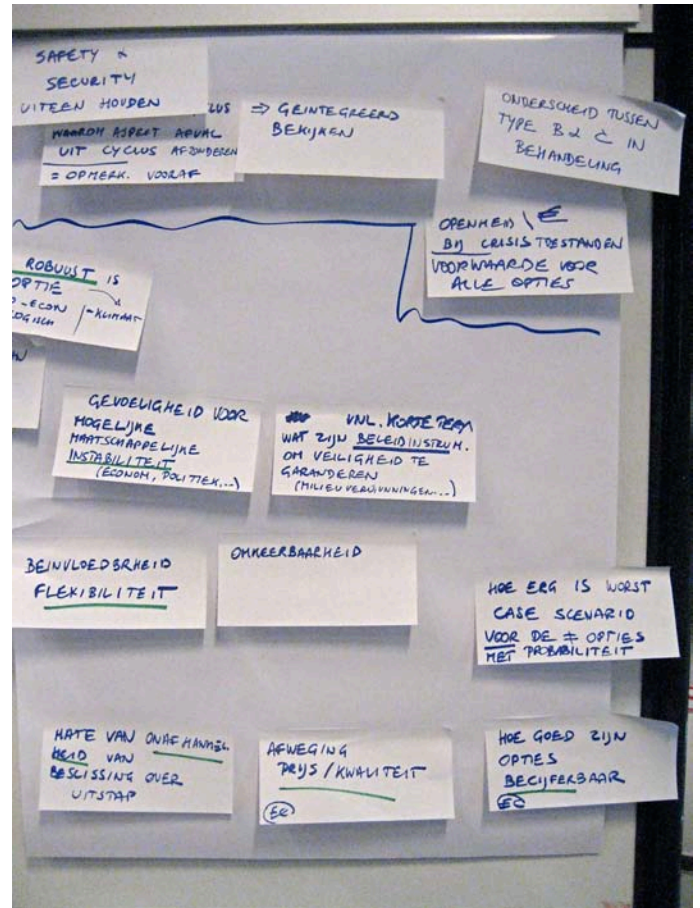 SAFETY &
SECURITY
UITEEN HOUDEN
WAAROM ASPECT AFVAL
UIT CYCLUS AFZONDEREN
= OPMERK. VOORAF
⇒ GEINTEGREERD
BEKIJKEN
ONDERSCHEID TUSSEN
TYPE B & C IN
BEHANDELING
OPENHEID
BIJ CRISISTOESTANDEN
VOORWAARDE VOOR
ALLE OPTIES
ROBUUST IS
OPTIE
-ECON
-KLIMAAT
GEVOELIGHEID VOOR
MOGELIJKE
MAATSCHAPPELIJKE
INSTABILITEIT
(ECONOM, POLITIEK,...)
VNL. KORTE TERM
WAT ZIJN BELEIDINSTRUM.
OM VEILIGHEID TE
GARANDEREN
(MILIEUVERGUNNINGEN...)
BEINVLOEDBRHEID
FLEXIBILITEIT
OMKEERBAARHEID
HOE ERG IS WORST
CASE SCENARIO
VOOR DE ≠ OPTIES
MET PROBABILITEIT
MATE VAN ONAFHANKEL.
HEID VAN
BESLISSING OVER
UITSTAP
AFWEGING
PRIJS / KWALITEIT
(EC)
HOE GOED ZIJN
OPTIES
BECIJFERBAAR
(EC)